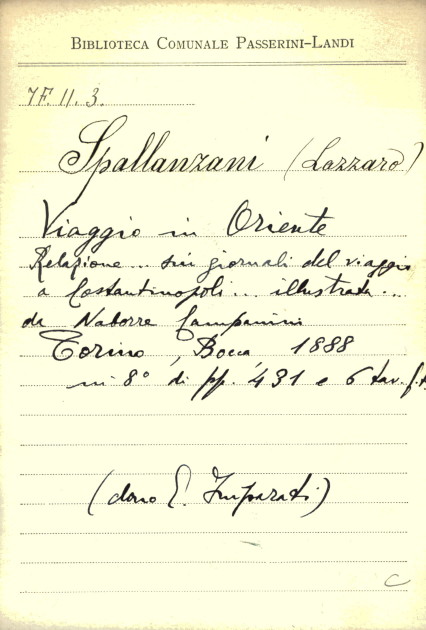 BIBLIOTECA COMUNALE PASSERINI-LANDI
7F. 11. 3.
Spallanzani (Lazzaro)
Viaggio in Oriente
Relazione... sui giornali del viaggio
a Costantinopoli... illustrata...
da Naborre Campanini
Torino, Bocca, 1888
in 8° di pp. 431 e 6 tav. f.t.
(dono E. Imparati)
C